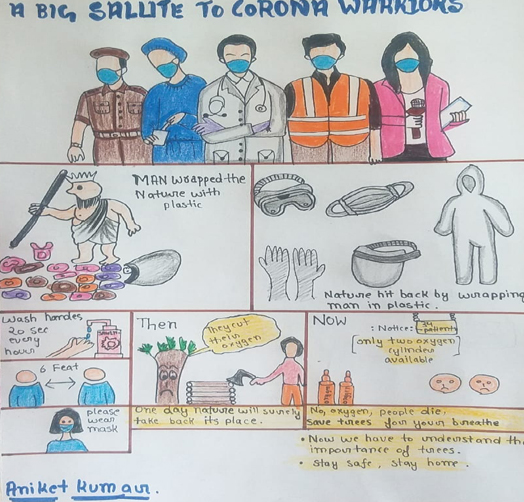 A BIG SALUTE TO CORONA WARRIORS
MAN wrapped the
Nature with
plastic
Nature hit back by wrapping
man in plastic.
Wash handes
20 sec
every
hour
6 Feat
please
wear
mask
Then
They cut
their
oxygen
One day nature will surely
take back its place.
NOW
: Notice:
patients
only two oxygen
cylinder
available
No, oxygen, people die,
save trees for your breathe
• Now we have to understand the
importance of trees.
• Stay safe, stay home.
Aniket Kumar.